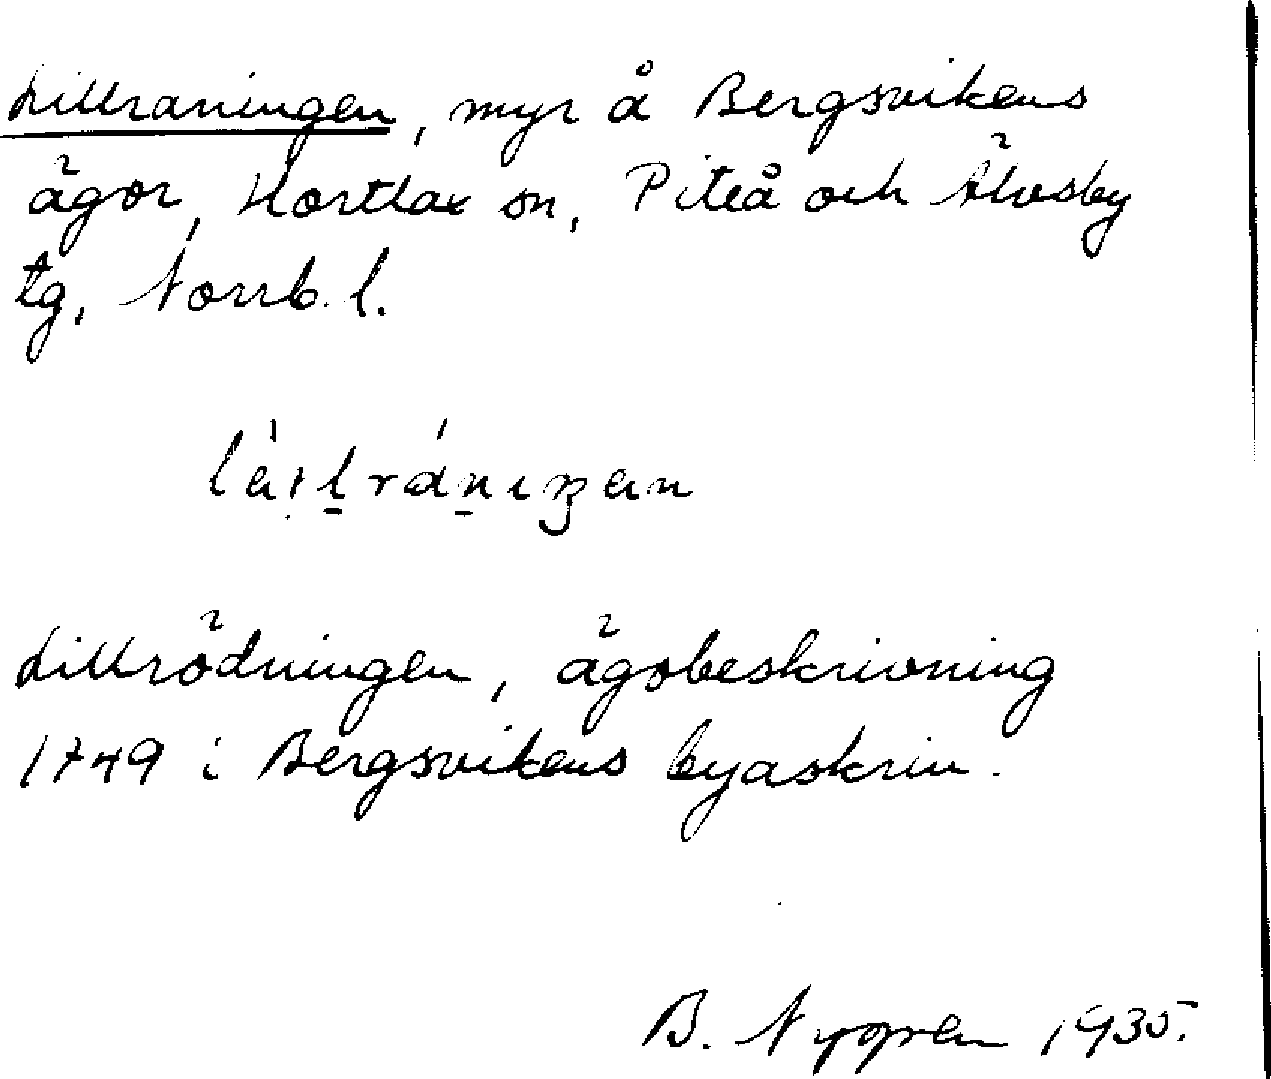 Lillraningen, myr å Bergsvikens
ägor, Hortlax sn, Piteå och Älvsby
tg, Norrb. l.
Lillrödningen, ägobeskrivning
1749 i Bergsvikens byaskrin.
B. Nygren 1935.